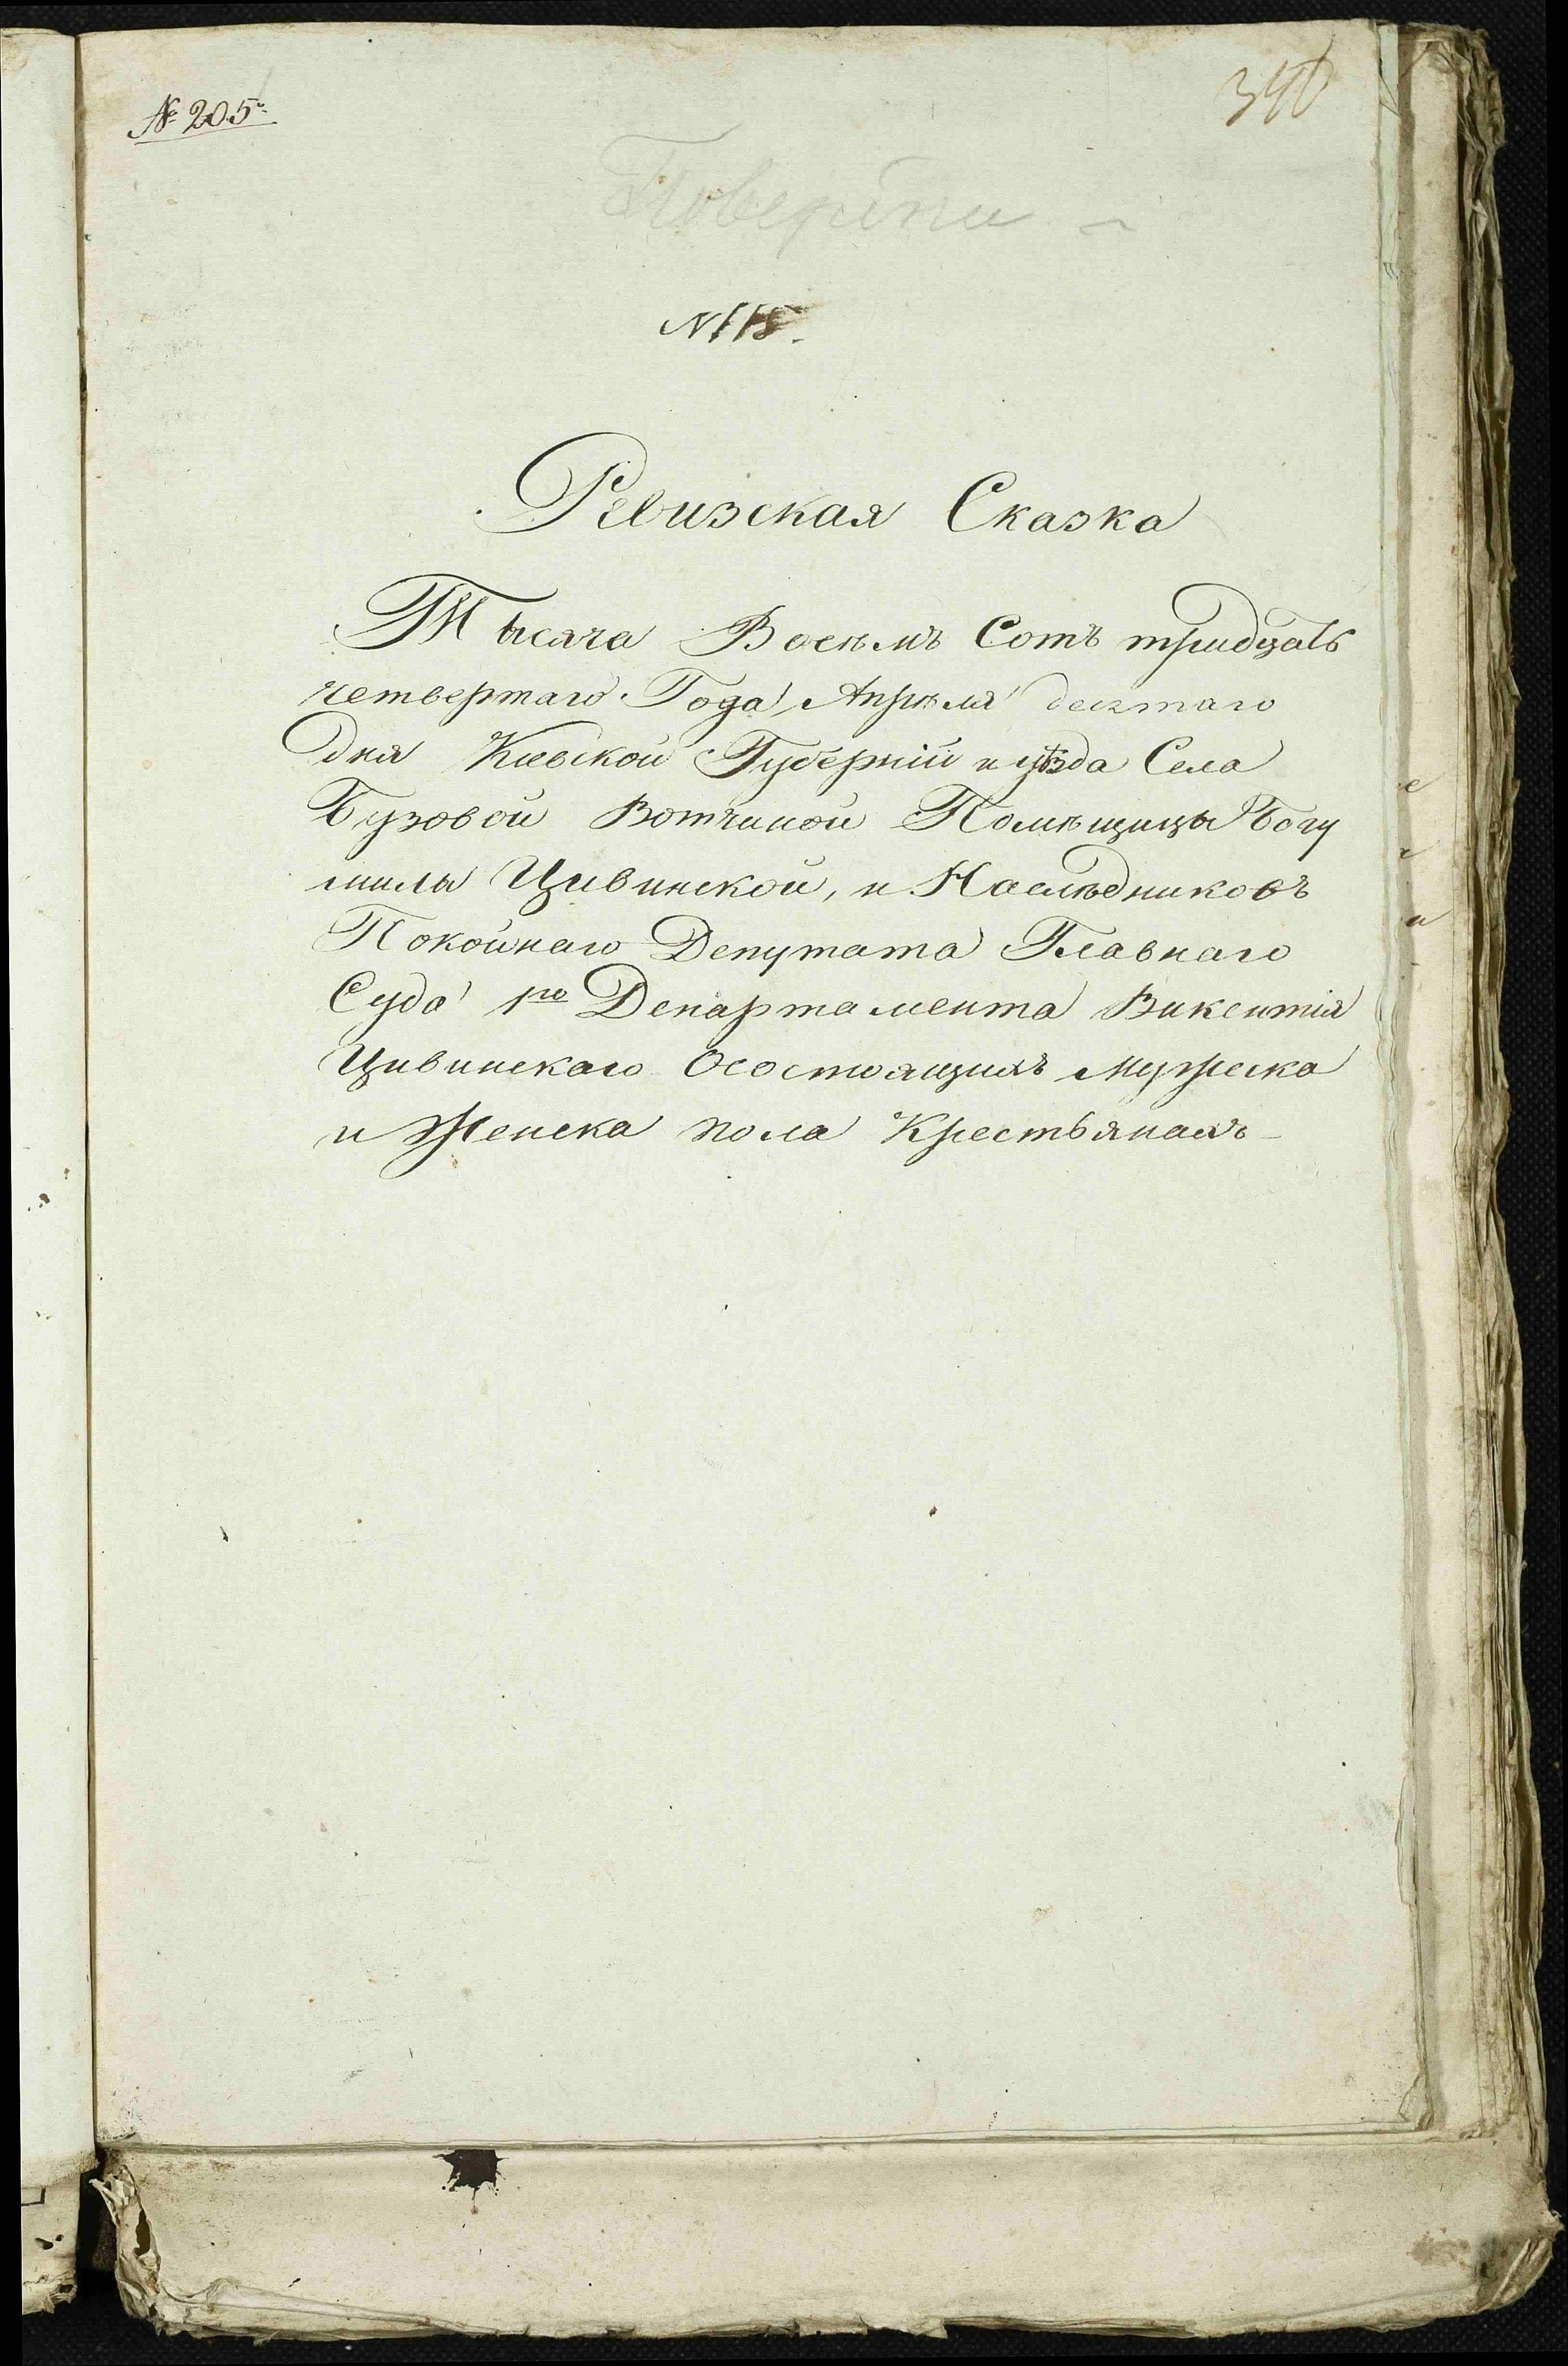 № 205
340
N 115.
Ревизская Сказка
Тысяча Восѣмъ Сотъ тридцать
четвертаго Года, Апрѣля десятаго
дня Киевской Губерніи и уѣзда Села
Бузовой Вотчиной Помѣщицы Богу
милы Цивинской, и Наслѣдниковъ
Покойнаго Депутата Главнаго
Суда 1го Департамента Викентія
Цивинскаго Осостоящихъ Мужеска
и Женска пола Крестьянахъ